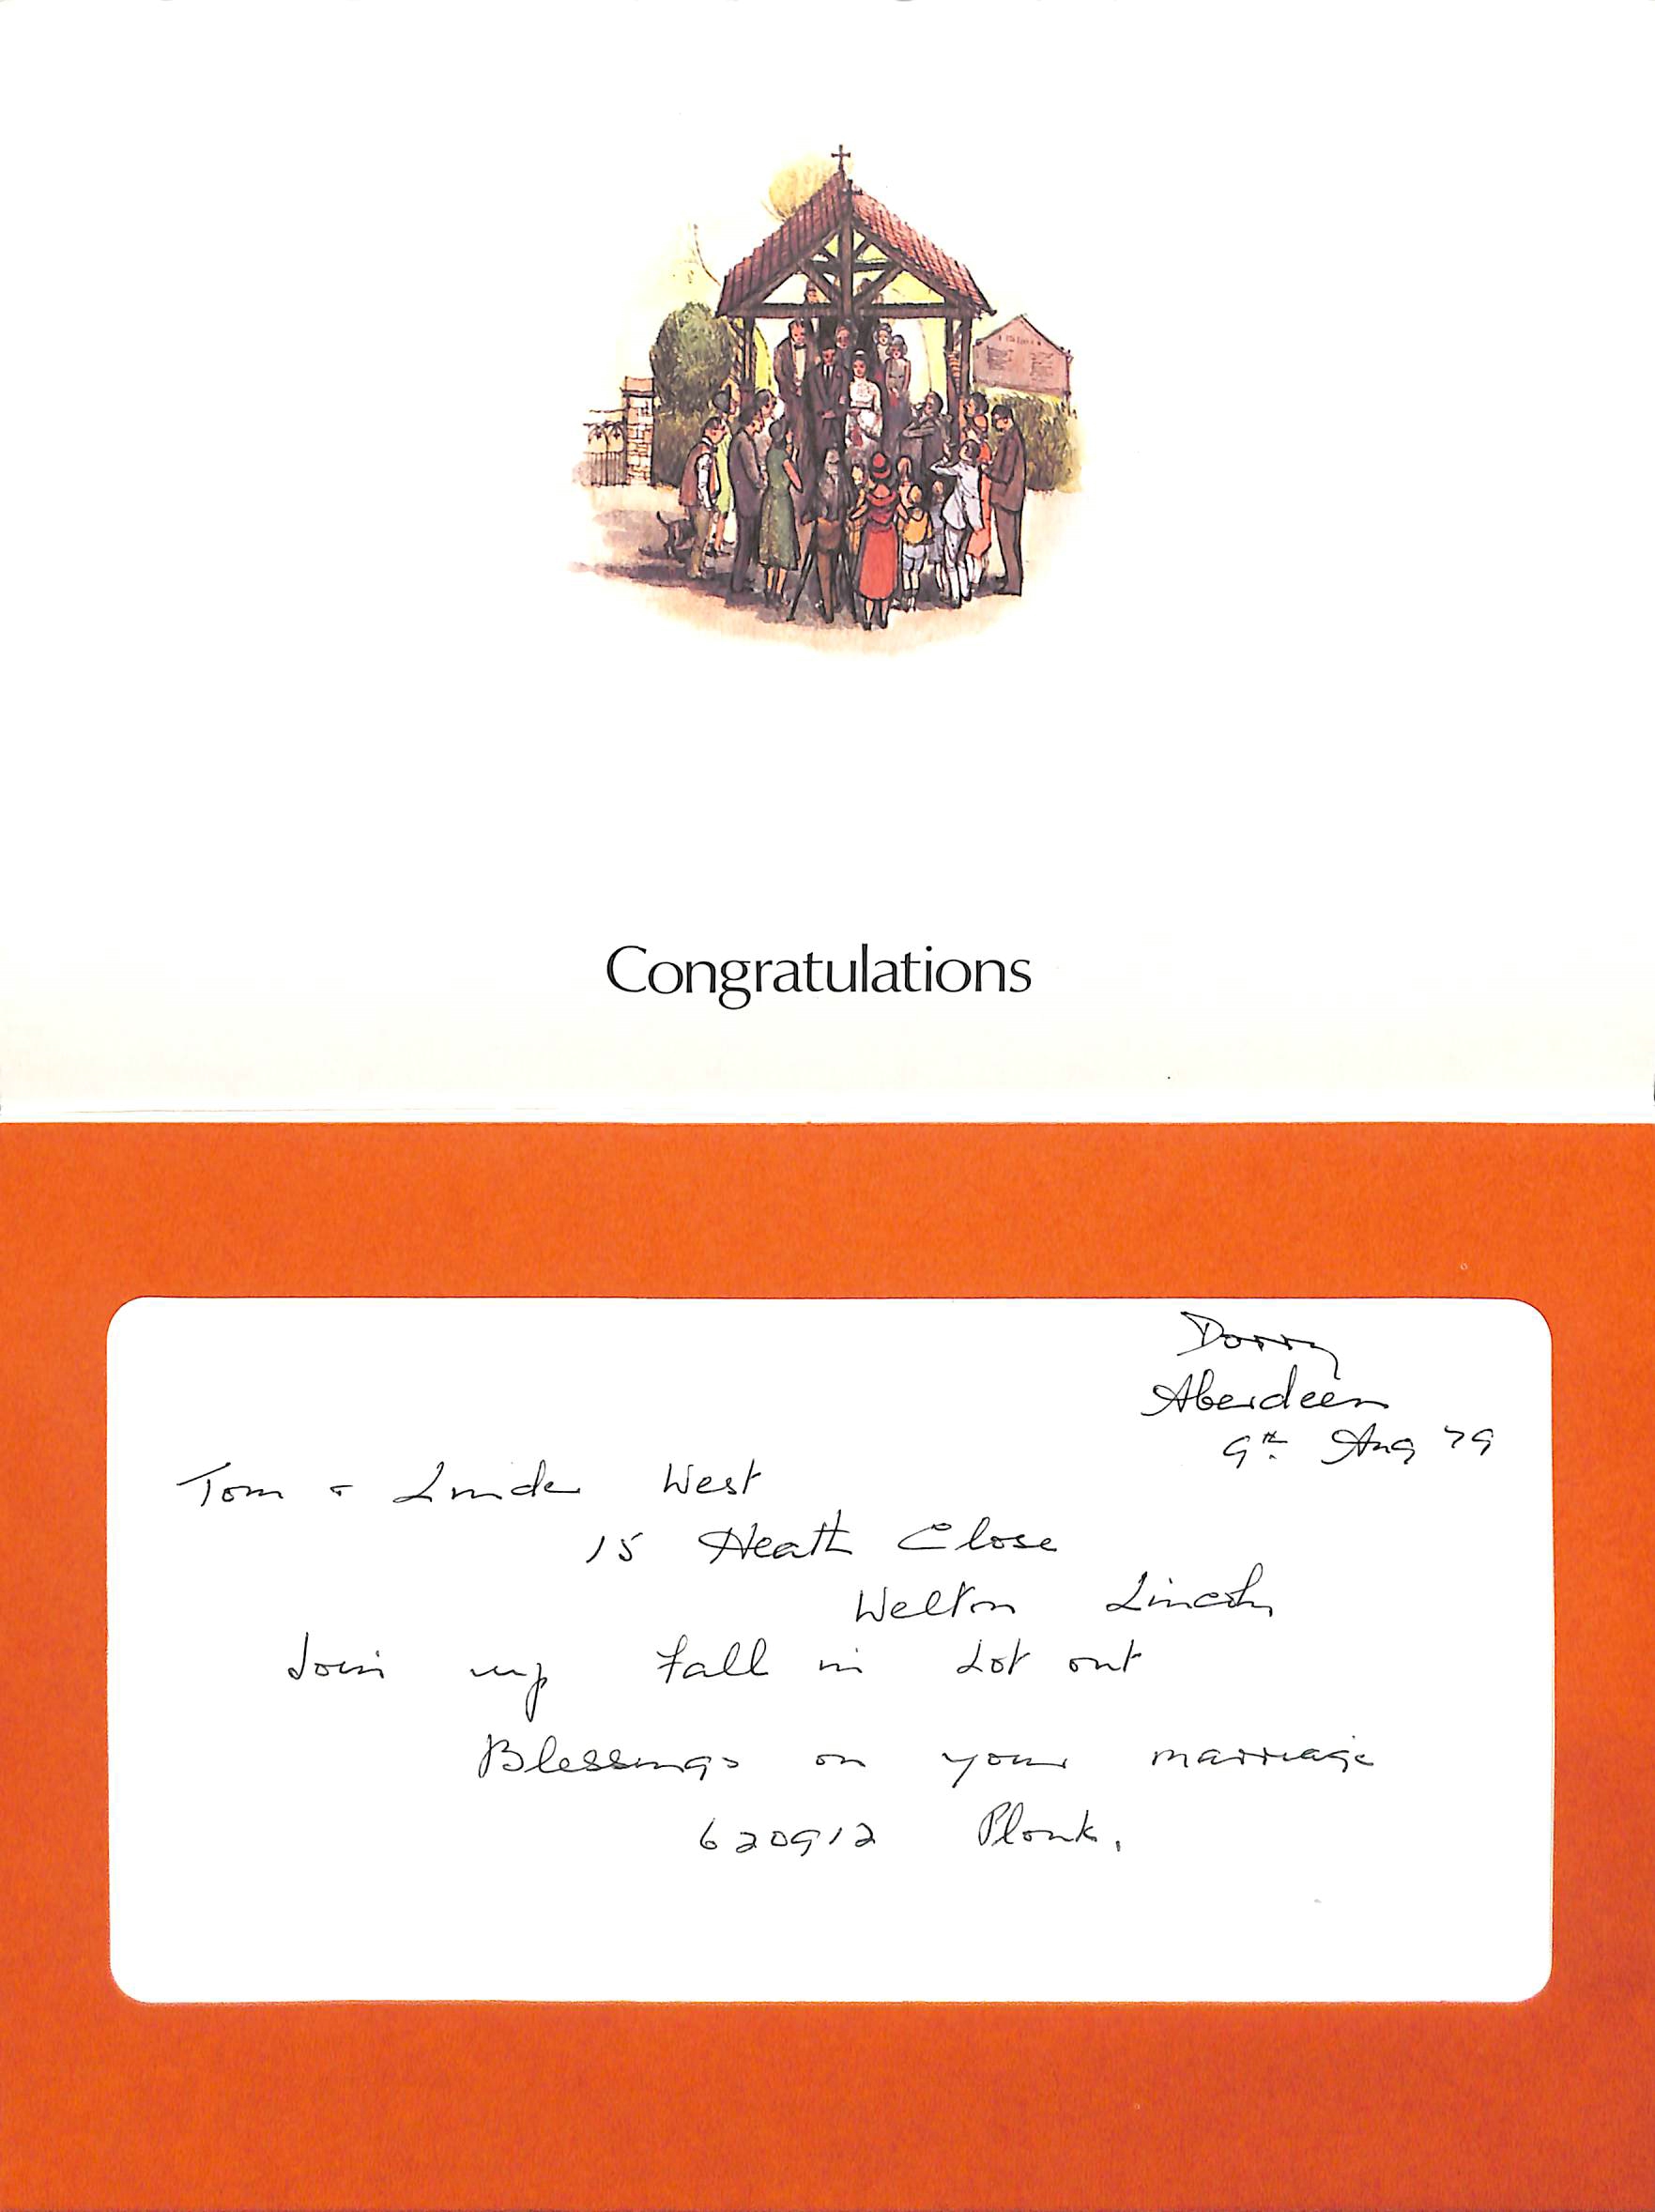 Congratulations
Aberdeen
9th Aug 79
Tom & Linda West
15 Heath Close
Welton Lincoln
Join up Fall in Lot out
Blessings on your marriage
620912 Plonk.